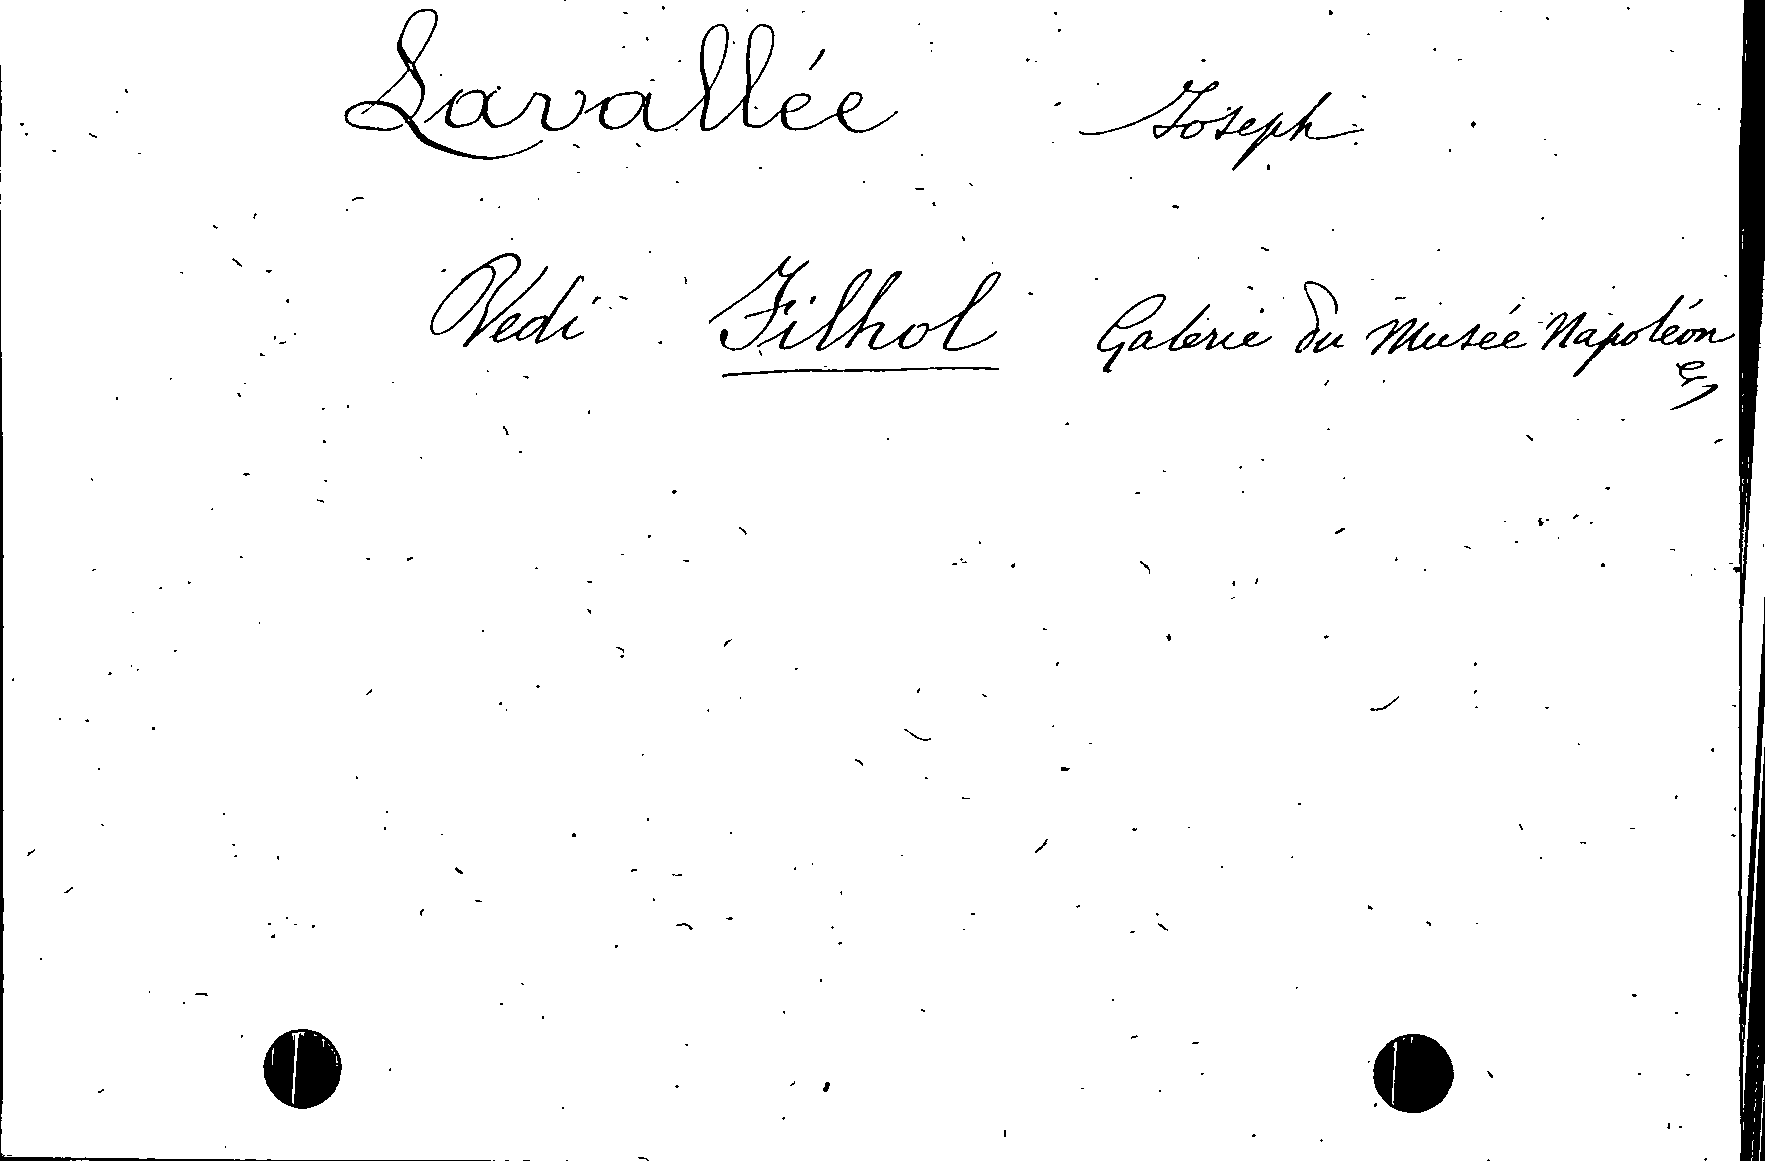 Lavallée Joseph
Vedi Filhol Galerie du Musée Napoléon